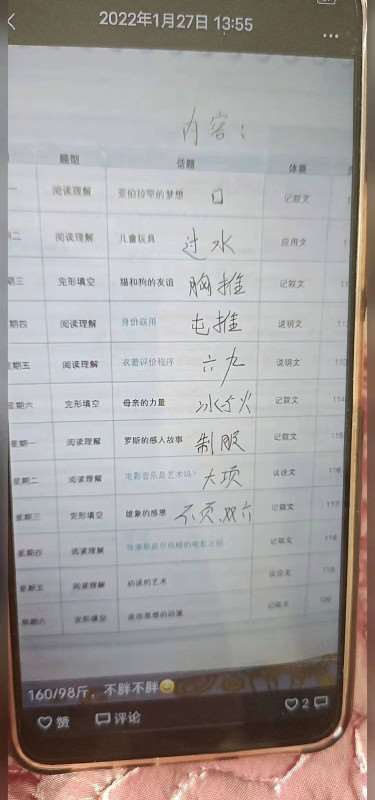 2022年1月27日 13:55
内容：
题型 话题 体裁
一 阅读理解 亚伯拉罕的梦想 口 记叙文
二 阅读理解 儿童玩具 过水 应用文
期三 完形填空 猫和狗的友谊 胸推 记叙文
期四 阅读理解 身份盗用 屯推 说明文
期五 阅读理解 衣着评价程序 六九 说明文
星期六 完形填空 母亲的力量 冰与火 记叙文 114
星期一 阅读理解 罗斯的感人故事 制服 记叙文 115
星期二 阅读理解 电影音乐是艺术吗? 大项 议论文 116
星期三 完形填空 雄象的感恩 不页.双六 记叙文 117
星期四 阅读理解 记叙文 118
星期五 阅读理解 的艺术 议论文 119
星期六 完形填空 记叙文 120
160/98斤，不胖不胖😄
赞 评论 2